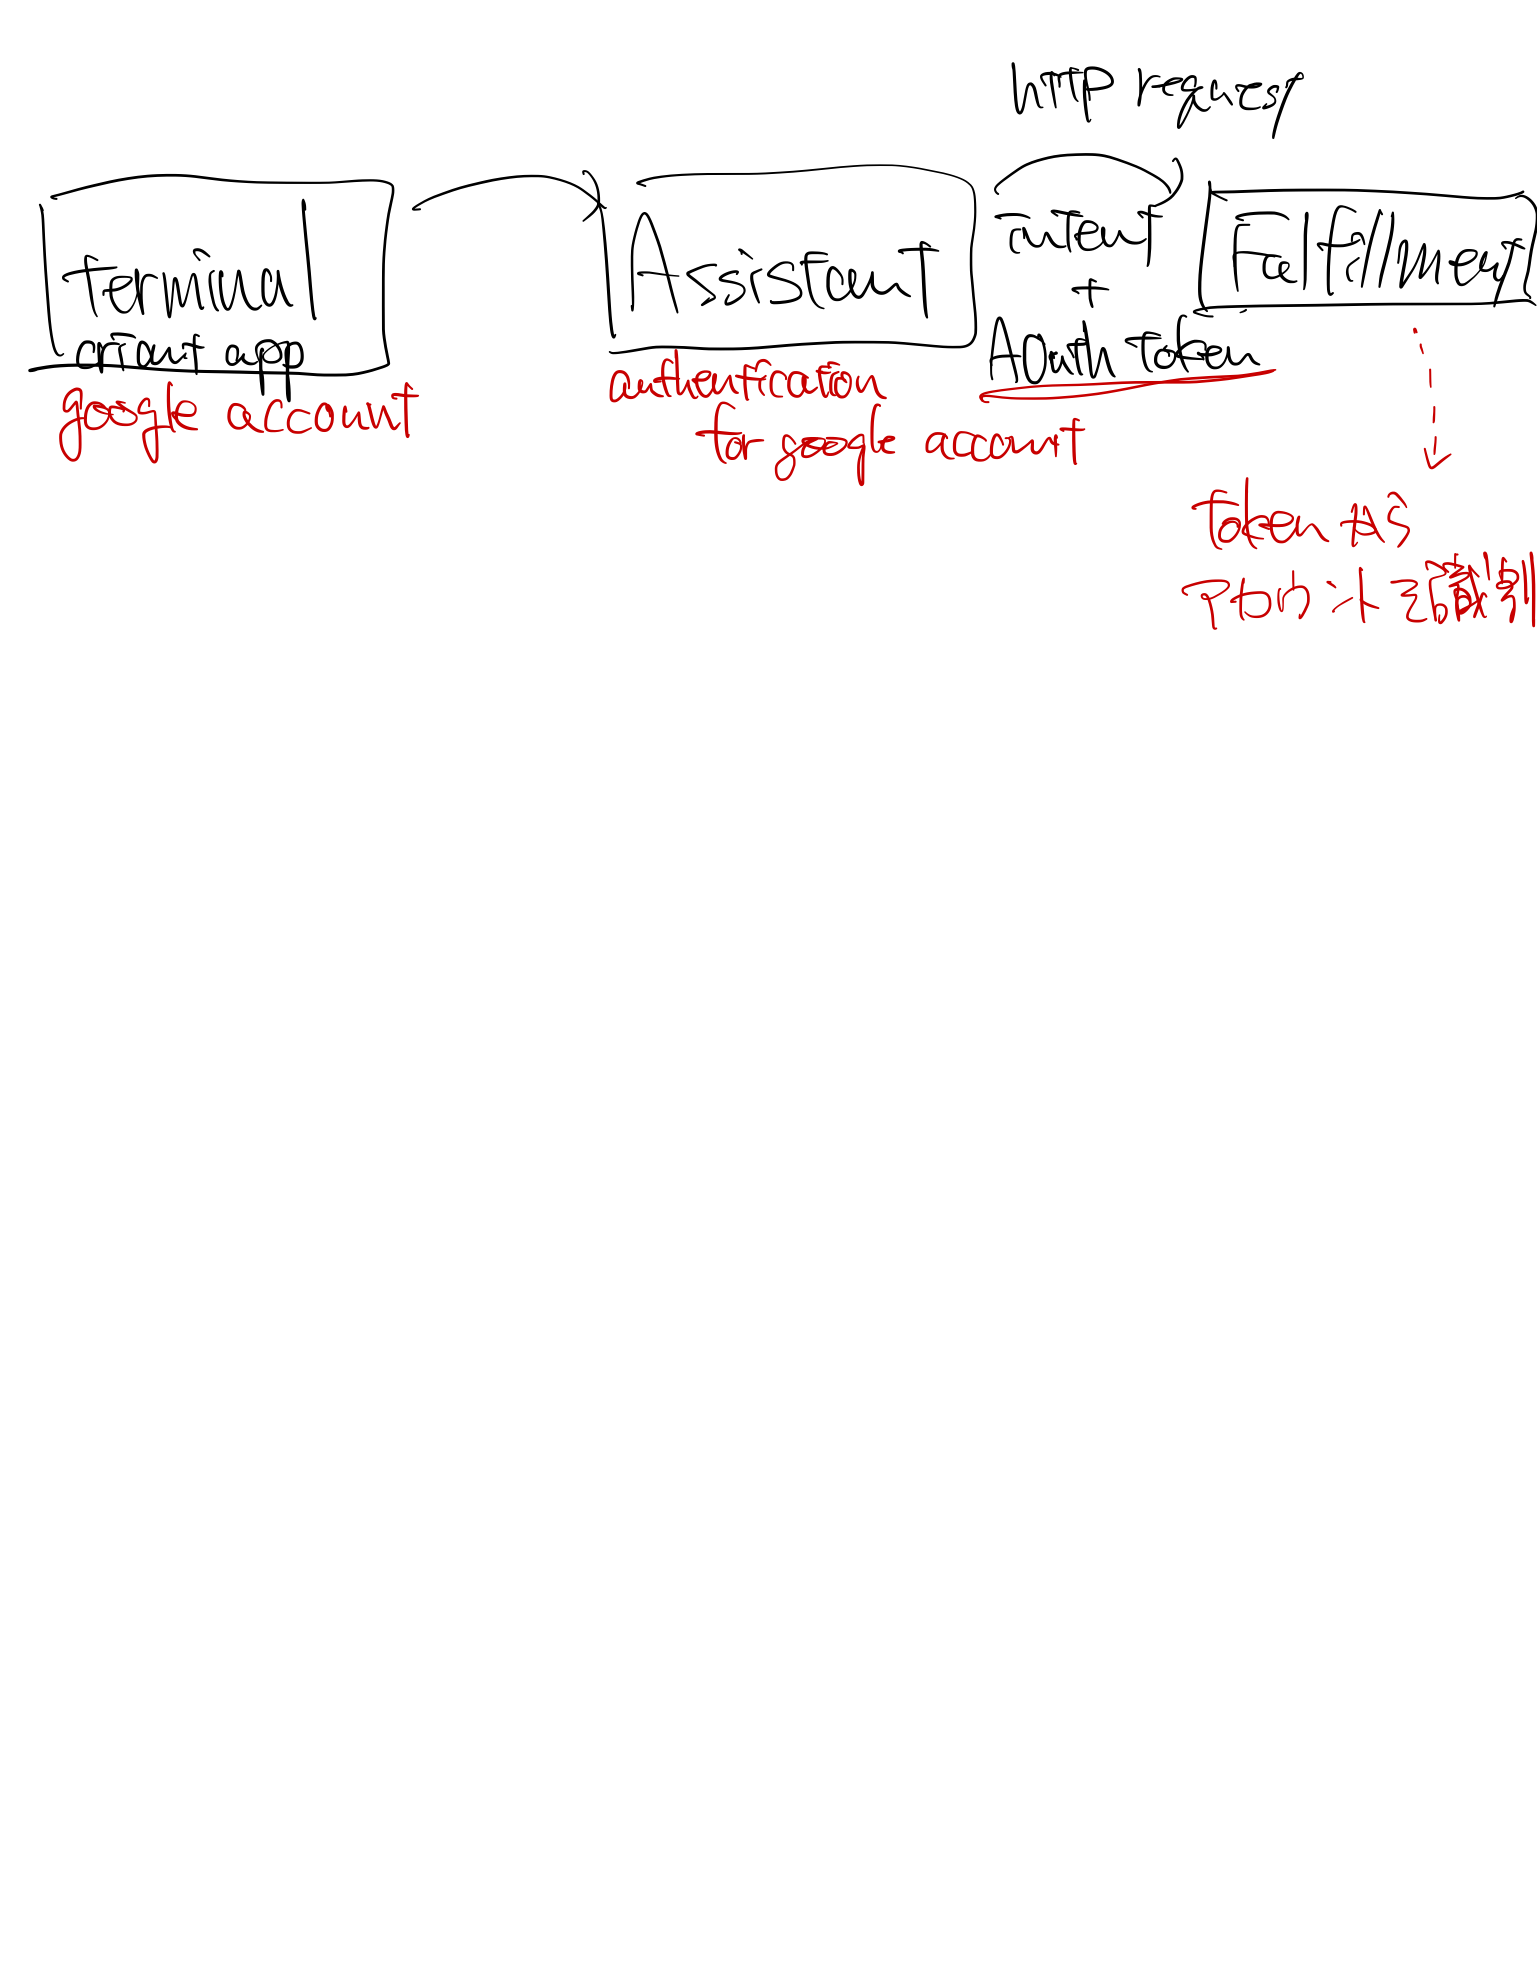 HTTP request
terminal
criant app
google account
Assistant
authentication
for google account
intent
+
AOuth token
Falfillment
tokenから
アカウントを識別